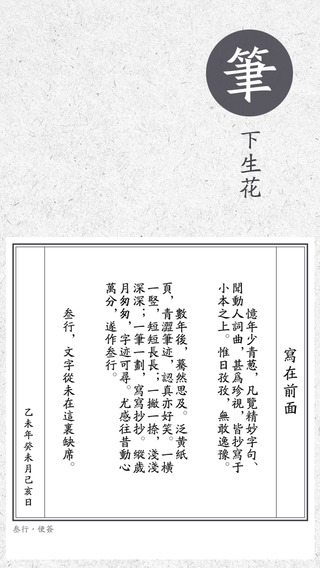 筆
下生花
寫在前面
憶年少青葱，凡覽精妙字句、
聞動人詞曲，甚爲珍視，皆抄寫于
小本之上。惟日孜孜，無敢逸豫。
數年後，驀然思及。泛黃紙
頁，青澀筆迹，認真亦好笑。一橫
一竪，短短長長；一撇一捺，淺淺
深深；一筆一劃，寫寫抄抄。縱歲
月匆匆，字迹可尋。尤感往昔動心
萬分，遂作叁行。
叁行，文字從未在這裏缺席。
乙未年癸未月己亥日
叁行·便签